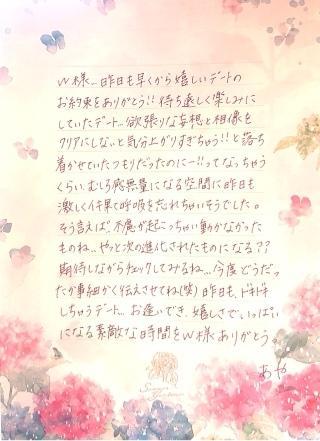 W様…昨日も早くから嬉しいデートの
お約束をありがとう!!待ち遠しく楽しみに
していたデート…欲張りな妄想と想像を
クリアにしないと気分上がりすぎちゃう!!と落ち
着かせていたつもりだったのにー!!ってなっちゃう
くらい、むしろ感無量になる空間に昨日も
激しくイキ果て呼吸を忘れちゃいそうでした。
そう言えば、不思が起こっちゃい動かなかった
ものね…やっと次の進化されたものになる??
期待しながらチェックしてみるね…今度どうだっ
たか事細かく伝えさせてね(笑)昨日も、ドキドキ
しちゃうデート…お逢いでき、嬉しさでいっぱい
になる素敵な時間をW様ありがとう
あや